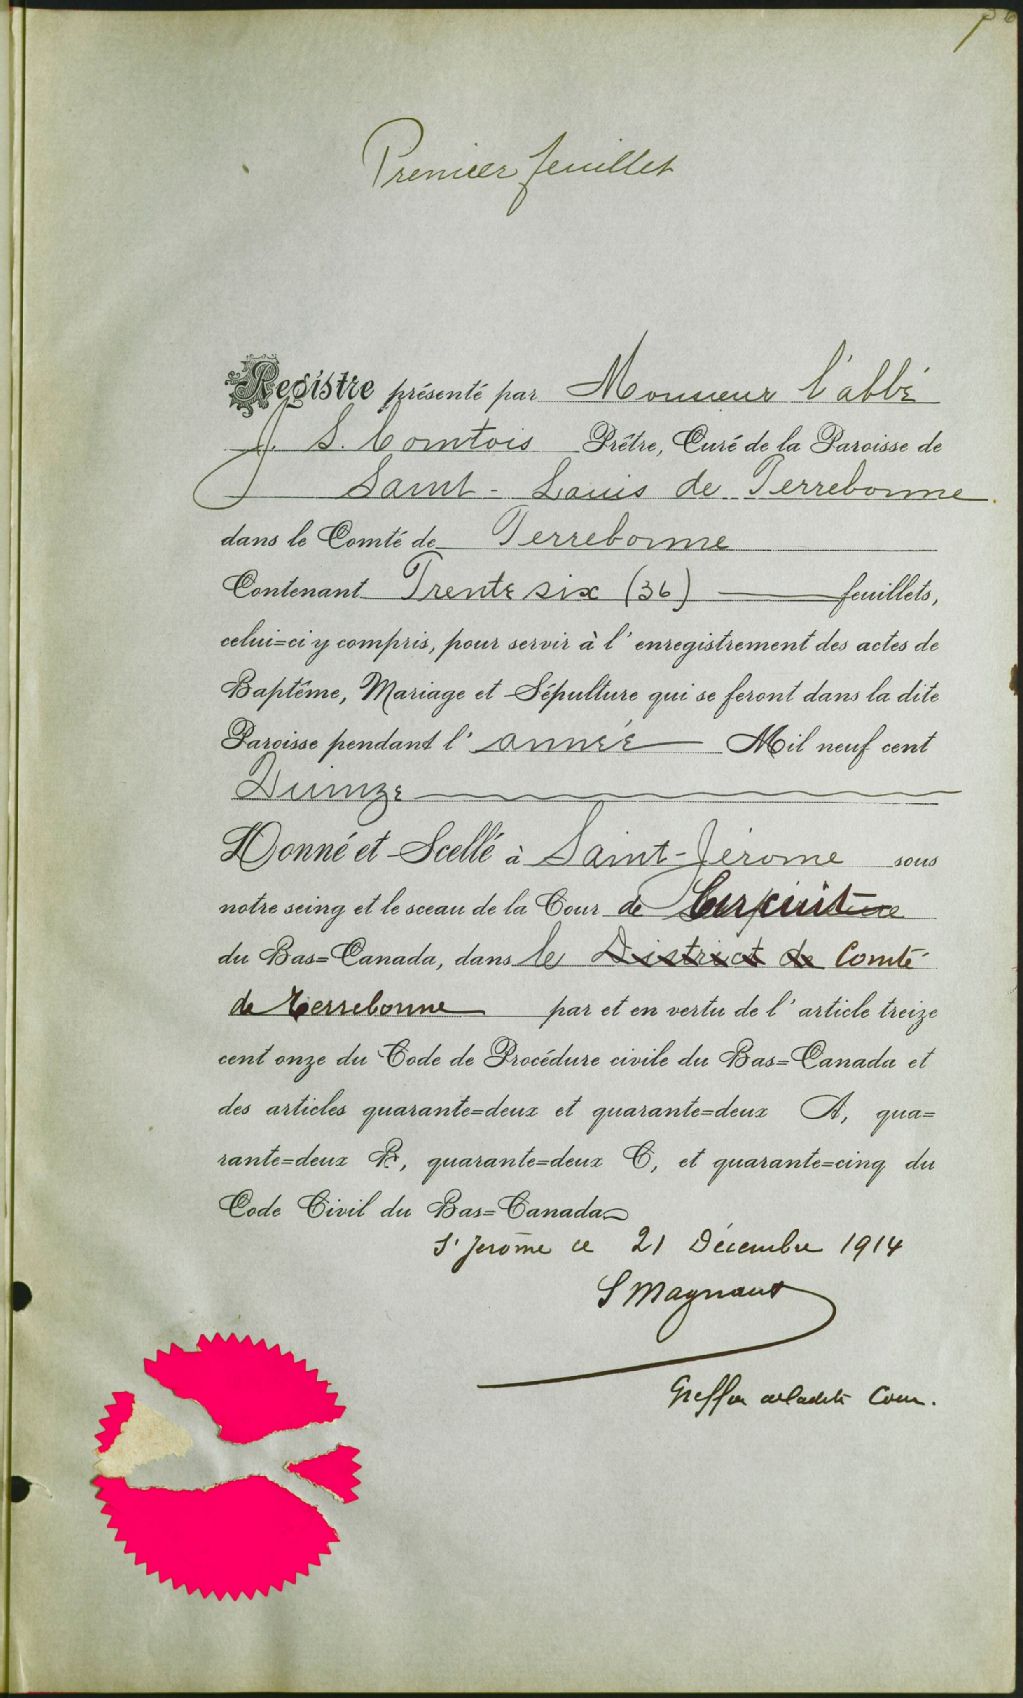 Premier feuillet
Registre présenté par Monsieur l'abbé
J. S. Comtois Prêtre, Curé de la Paroisse de
Saint-Louis de Terrebonne
dans le Comté de Terrebonne
Contenant Trente six (36) feuillets,
celui=ci y compris, pour servir à l'enregistrement des actes de
Baptême, Mariage et Sépulture qui se feront dans la dite
Paroisse pendant l'année Mil neuf cent
Quinze
Donné et Scellé à Saint-Jérome sous
notre seing et le sceau de la Cour de Circuit
du Bas=Canada, dans le District de Comté
de Terrebonne par et en vertu de l'article treize
cent onze du Code de Procédure civile du Bas=Canada et
des articles quarante=deux et quarante=deux A, qua=
rante=deux B, quarante=deux C, et quarante=cinq du
Code Civil du Bas=Canada
St Jerôme ce 21 Décembre 1914
Magnant
Greffier de ladite Cour.